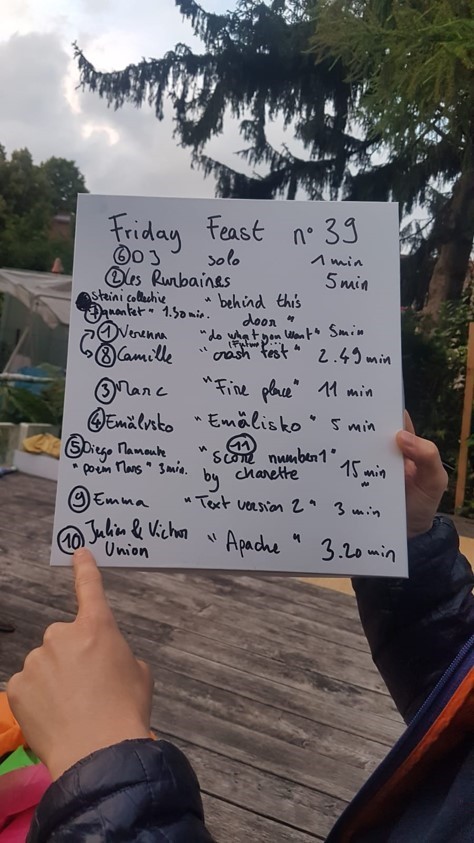 Friday Feast n° 39
⑥ DJ solo 1 min
② Les Runbaines 5 min
Steini collective "behind this
⑦ quartet" 1.30 min. door"
① Verenna "do what you want" 5 min
(Future...)
⑧ Camille "crash test" 2.49 min
③ Marc "Fire place" 11 min
④ Emälisko "Emälisko" 5 min
⑤ Diego
⑪
"score number 1"
"poem Mans" 3 min. by charette 15 min
⑨ Emma "Text version 2" 3 min
⑩ Julia & Victor "Apache" 3.20 min
Union